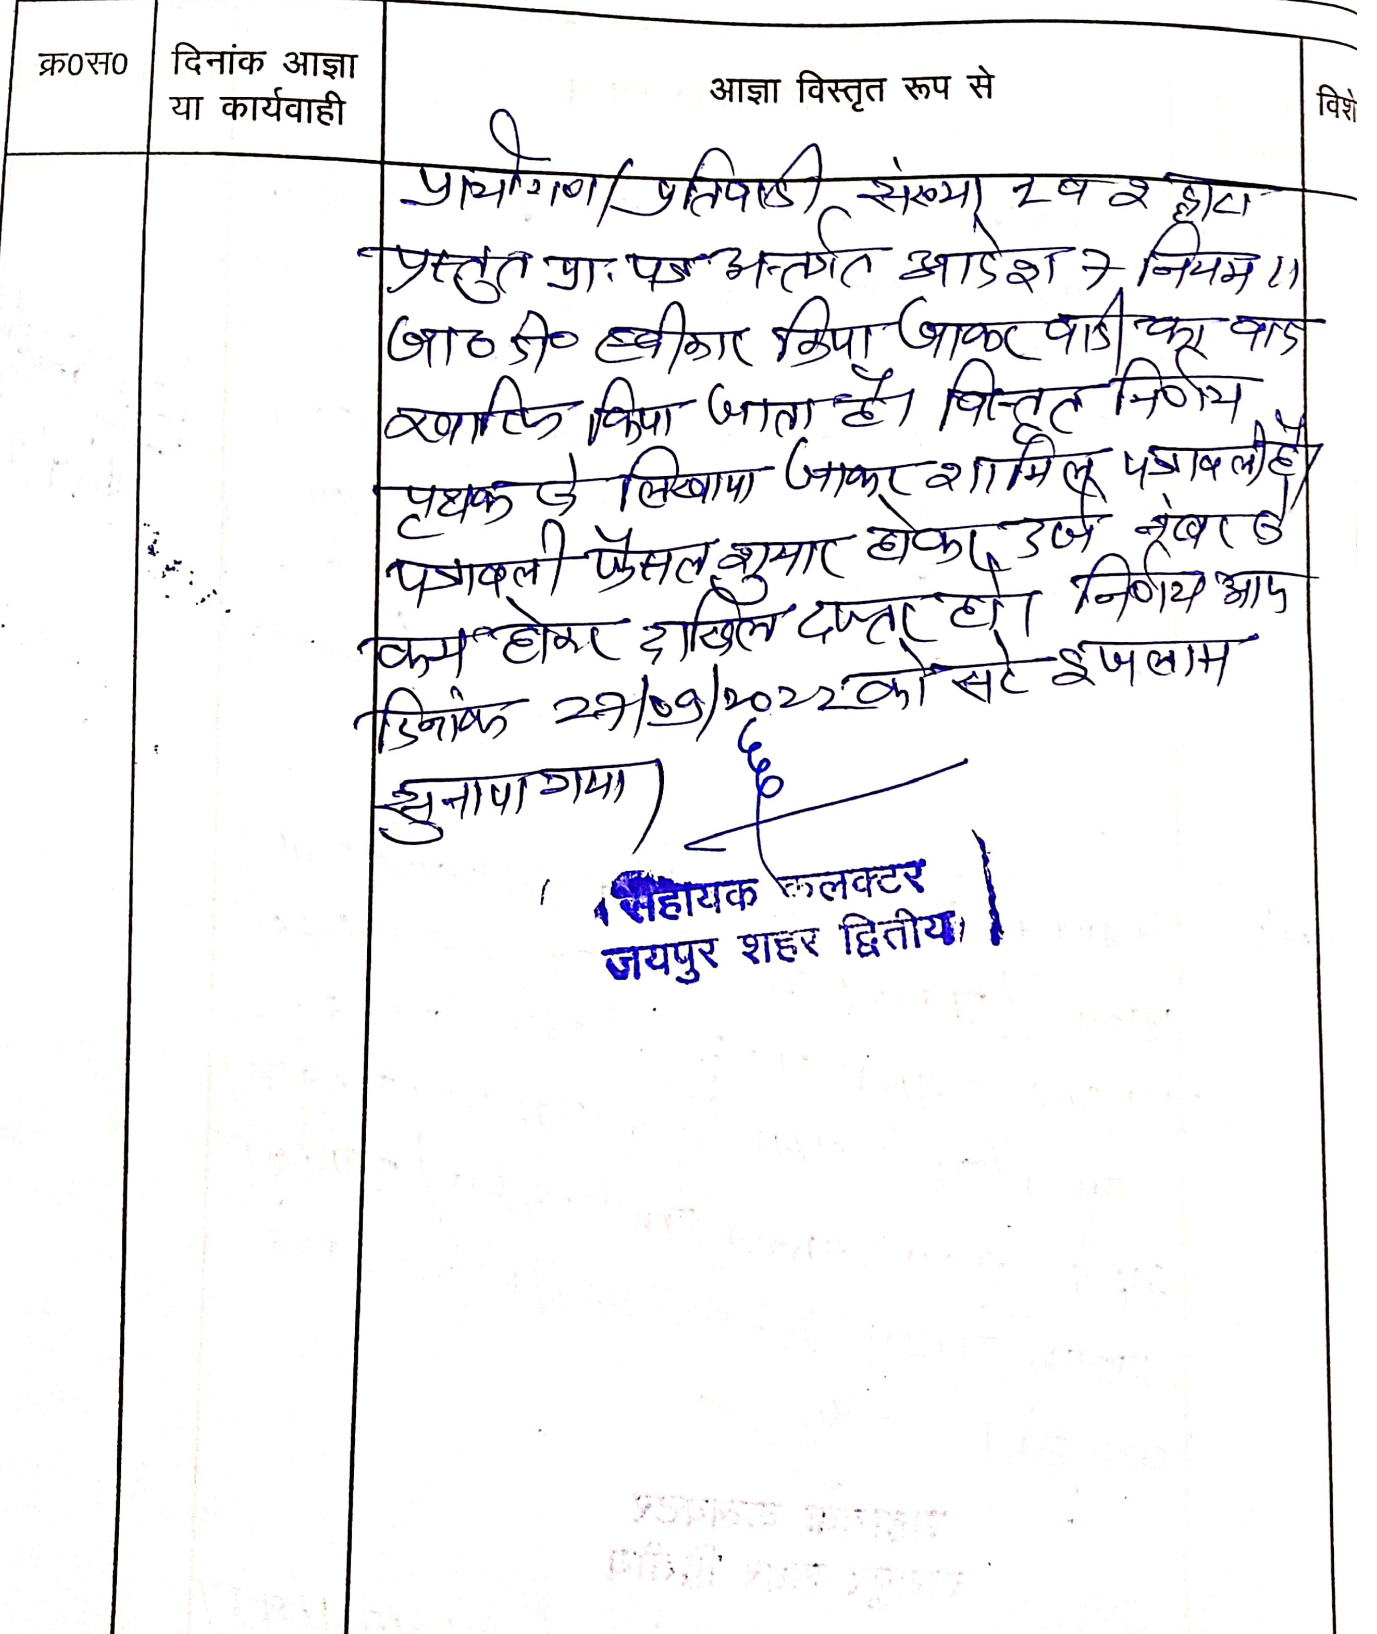 क्र०स०
दिनांक आज्ञा
या कार्यवाही
आज्ञा विस्तृत रूप से
विशे
प्रार्थीगण/प्रतिवादी संख्या 1 व 2 द्वारा
प्रस्तुत प्रा. पत्र अन्तर्गत आदेश 7 नियम 11
जा० दी० स्वीकार किया जाकर वादी का वाद
खारिज किया जाता है। विस्तृत निर्णय
पृथक से लिखाया जाकर शामिल पत्रावली है।
पत्रावली फैसल शुमार होकर दर्ज नंबर से
कम होकर दाखिल दफ्तर हो। निर्णय आज
दिनांक 27/09/2022 को सरे इजलास
सुनाया गया।
सहायक कलक्टर
जयपुर शहर द्वितीय